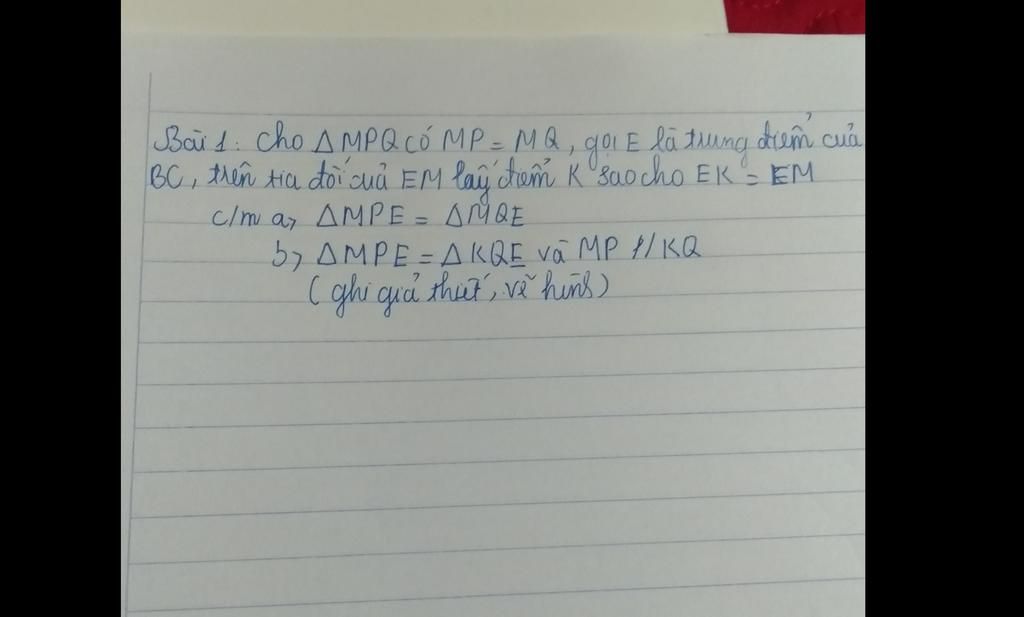 Bài 1: Cho △MPQ có MP = MQ, gọi E là trung điểm của
BC, trên tia đối của EM lấy điểm K sao cho EK = EM
c/m a, △MPE = △MQE
b, △MPE = △KQE và MP // KQ
(ghi giả thiết, vẽ hình)